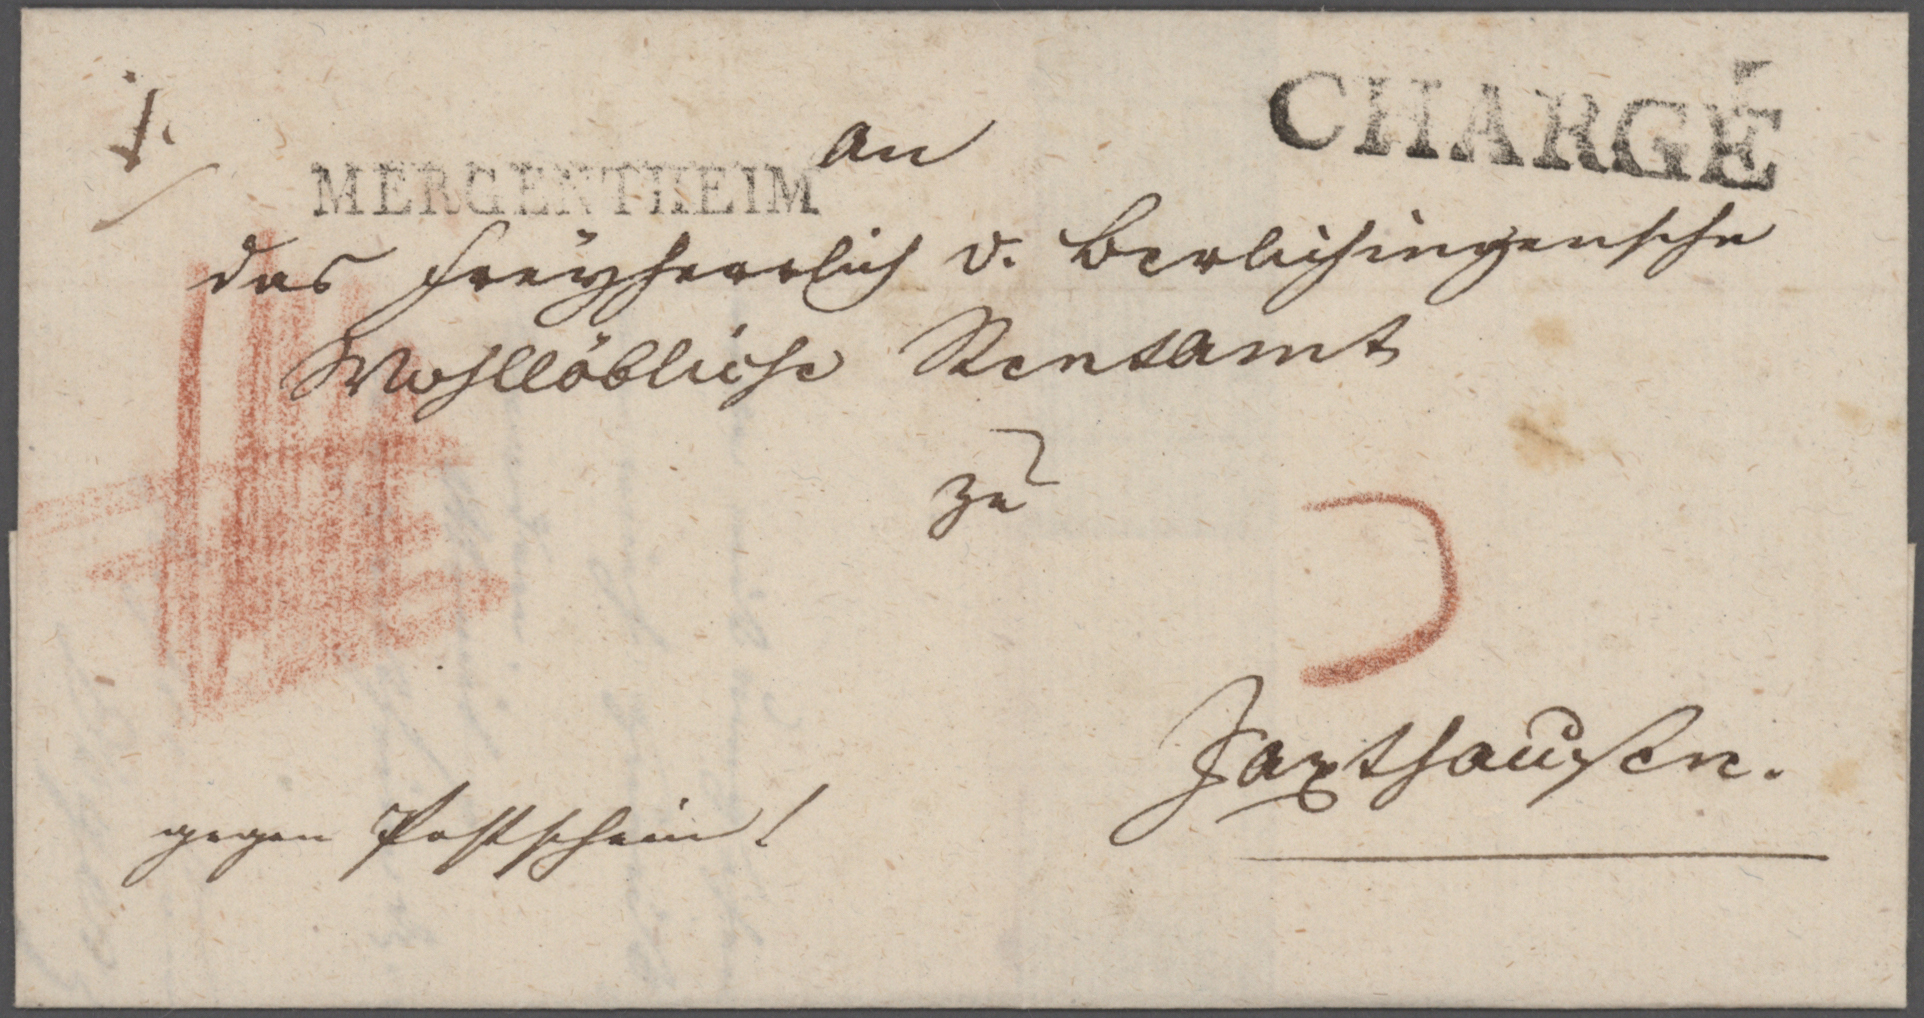 CHARGÉ
MERGENTHEIM
An
das Freÿherrlich v. Berlichingensche
Wohllöbliche Rentamt
zu
Jaxthausen.
gegen Postschein!